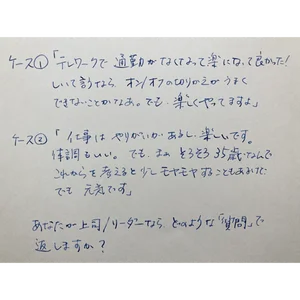 ケース① 「テレワークで 通勤がなくなって 楽になって 良かった!
しいて言うなら オン/オフの切りかえが うまく
できないことかなあ。でも、楽しくやってますよ」
ケース② 「仕事は やりがいが あるし、楽しいです。
体調もいい。でも、まあ そろそろ 35歳なんで
これからを 考えると 少し モヤモヤ することもあるけど
でも 元気です」
あなたが 上司/リーダーなら、どのような「質問」で
返しますか?